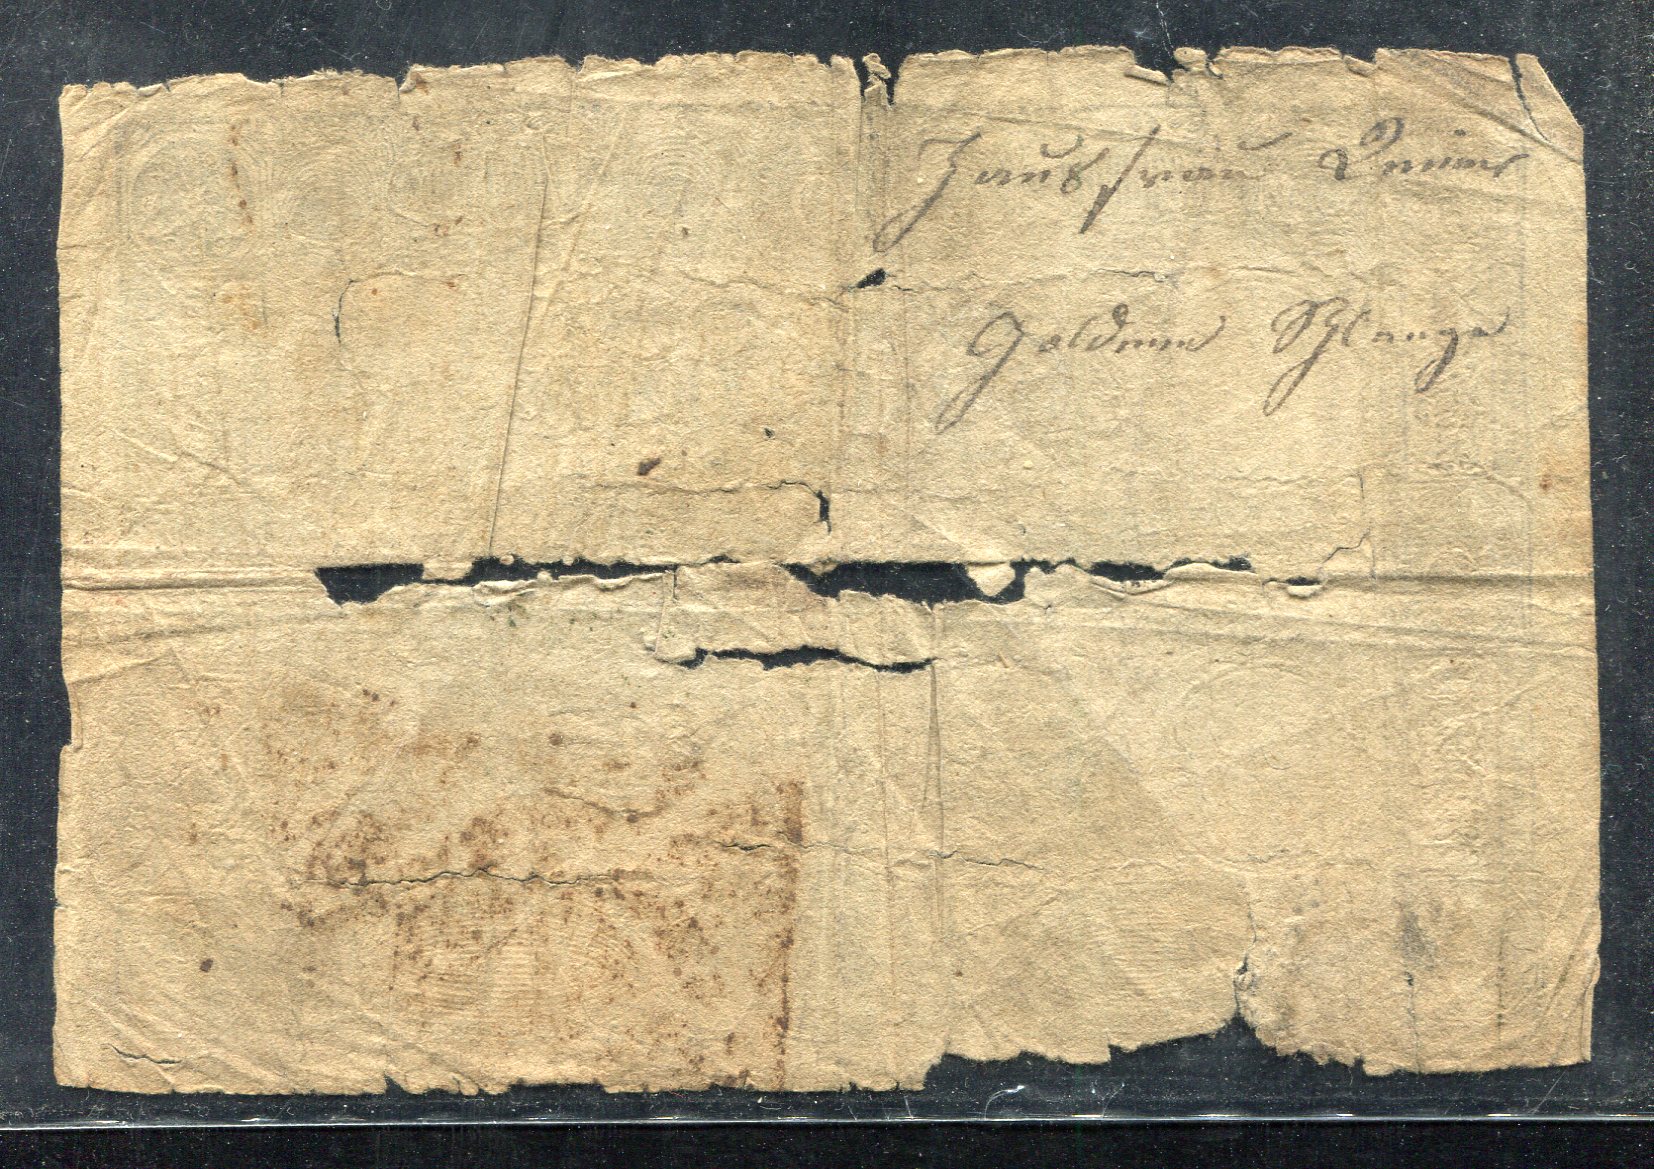 Hausfrau
Goldene Schlange